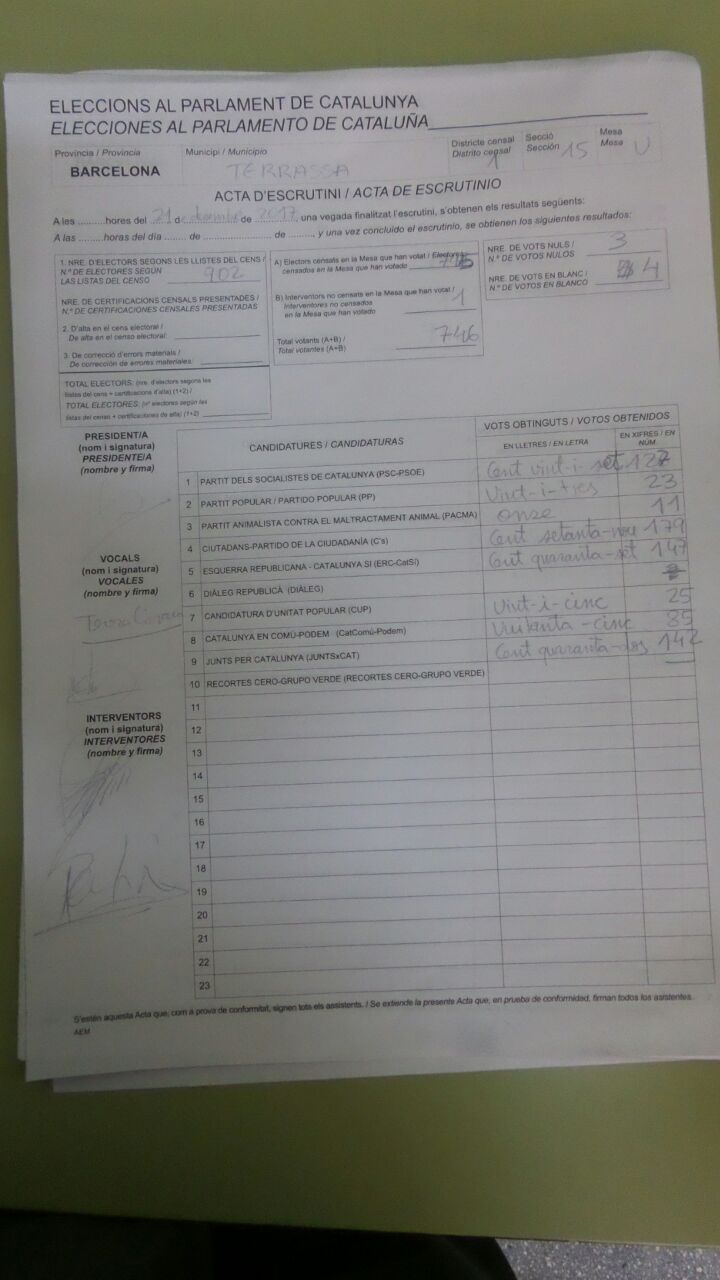 ELECCIONS AL PARLAMENT DE CATALUNYA
ELECCIONES AL PARLAMENTO DE CATALUÑA
Província / Provincia
BARCELONA
Municipi / Municipio
TERRASSA
Districte censal
Distrito censal
1
Secció
Sección
15
Mesa
Mesa
U
ACTA D'ESCRUTINI / ACTA DE ESCRUTINIO
A les ..........hores del 21 de desembre de 2017, una vegada finalitzat l'escrutini, s'obtenen els resultats següents:
A las ..........horas del día ........ de ........................ de ........, y una vez concluido el escrutinio, se obtienen los siguientes resultados:
1. NRE. D'ELECTORS SEGONS LES LLISTES DEL CENS /
N.º DE ELECTORES SEGÚN
LAS LISTAS DEL CENSO
902
NRE. DE CERTIFICACIONS CENSALS PRESENTADES /
N.º DE CERTIFICACIONES CENSALES PRESENTADAS
2. D'alta en el cens electoral /
De alta en el censo electoral:
3. De correcció d'errors materials /
De corrección de errores materiales:
TOTAL ELECTORS: (nre. d'electors segons les
llistes del cens + certificacions d'alta) (1+2) /
TOTAL ELECTORES: (nº electores según las
listas del censo + certificaciones de alta) (1+2)
A) Electors censats en la Mesa que han votat / Electores
censados en la Mesa que han votado
745
B) Interventors no censats en la Mesa que han votat /
Interventores no censados
en la Mesa que han votado
1
Total votants (A+B) /
Total votantes (A+B)
746
NRE. DE VOTS NULS /
N.º DE VOTOS NULOS
3
NRE. DE VOTS EN BLANC /
N.º DE VOTOS EN BLANCO
4
PRESIDENT/A
(nom i signatura)
PRESIDENTE/A
(nombre y firma)
VOCALS
(nom i signatura)
VOCALES
(nombre y firma)
INTERVENTORS
(nom i signatura)
INTERVENTORES
(nombre y firma)
CANDIDATURES / CANDIDATURAS
VOTS OBTINGUTS / VOTOS OBTENIDOS
EN LLETRES / EN LETRA
EN XIFRES / EN NÚM.
1 PARTIT DELS SOCIALISTES DE CATALUNYA (PSC-PSOE) Cent vint-i-set 127
2 PARTIT POPULAR / PARTIDO POPULAR (PP) Vint-i-tres 23
3 PARTIT ANIMALISTA CONTRA EL MALTRACTAMENT ANIMAL (PACMA) onze 11
4 CIUTADANS-PARTIDO DE LA CIUDADANÍA (C's) Cent setanta-nou 179
5 ESQUERRA REPUBLICANA - CATALUNYA SI (ERC-CatSí) Cent quaranta-set 147
6 DIÀLEG REPUBLICÀ (DIÀLEG)
7 CANDIDATURA D'UNITAT POPULAR (CUP) Vint-i-cinc 25
8 CATALUNYA EN COMÚ-PODEM (CatComú-Podem) Vuitanta-cinc 85
9 JUNTS PER CATALUNYA (JUNTSxCAT) Cent quaranta-dos 142
10 RECORTES CERO-GRUPO VERDE (RECORTES CERO-GRUPO VERDE)
11
12
13
14
15
16
17
18
19
20
21
22
23
S'estén aquesta Acta que, com a prova de conformitat, signen tots els assistents. / Se extiende la presente Acta que, en prueba de conformidad, firman todos los asistentes.
AEM